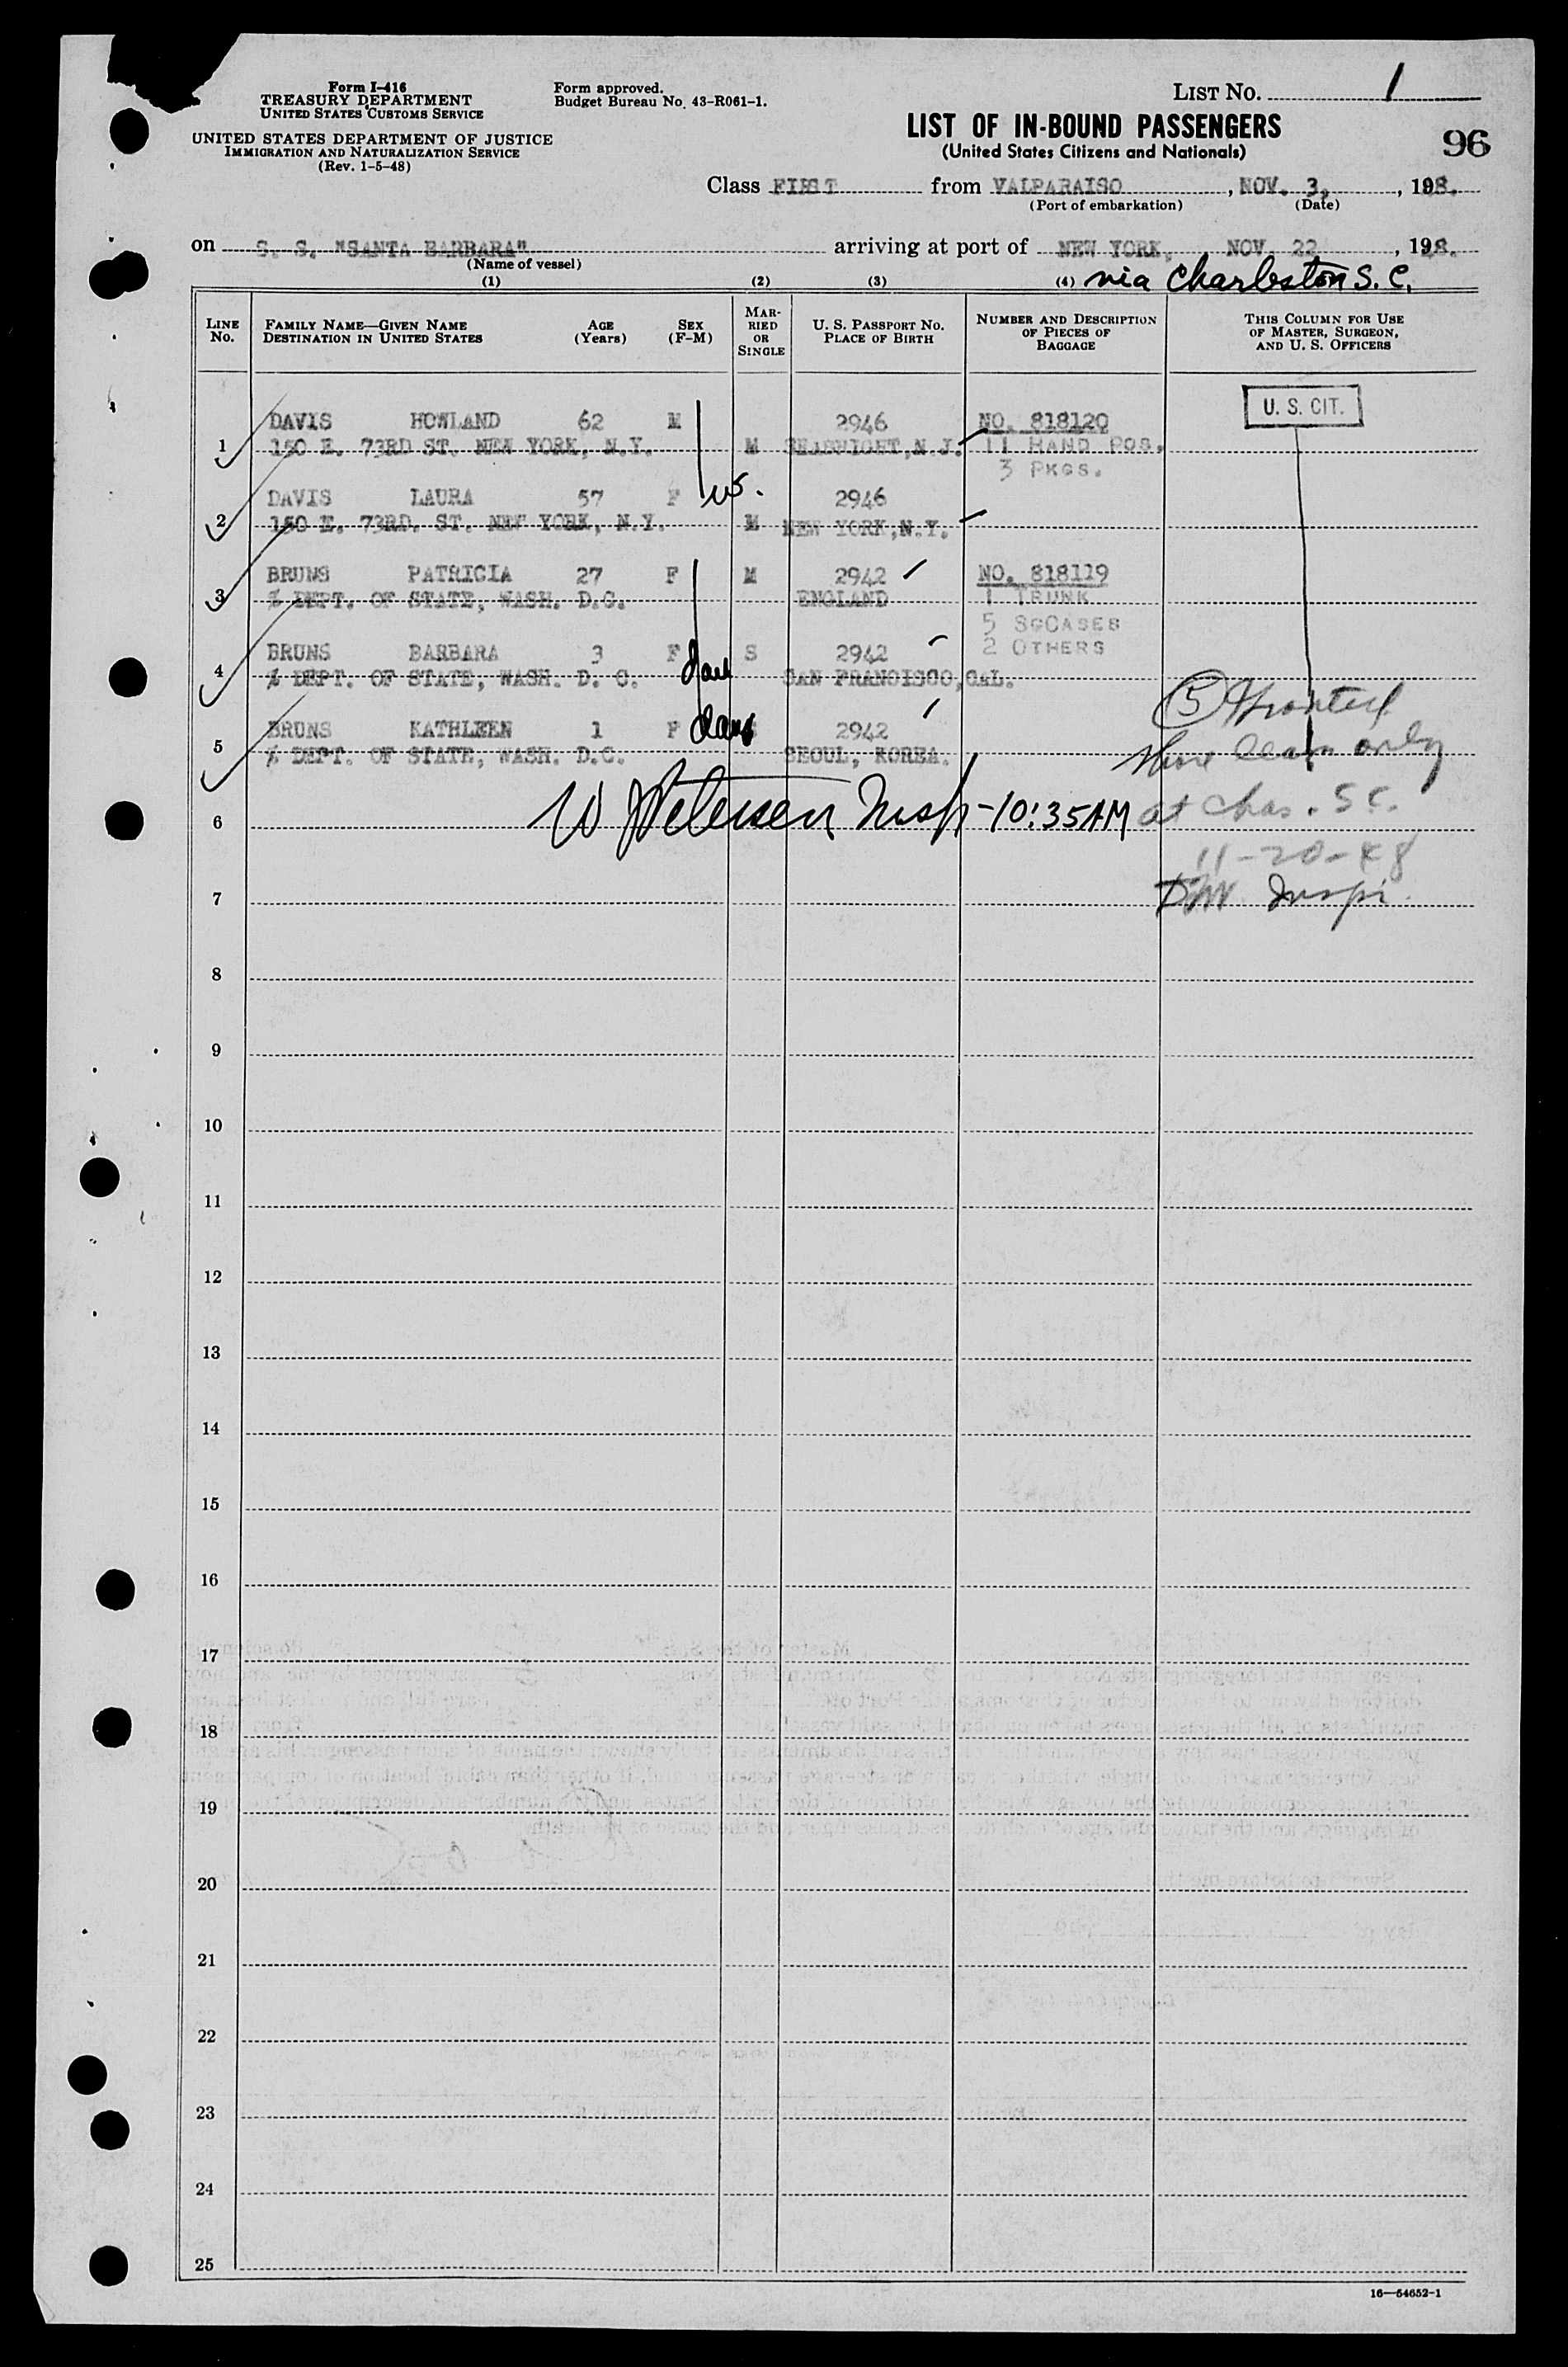 Form I-416
TREASURY DEPARTMENT
UNITED STATES CUSTOMS SERVICE
UNITED STATES DEPARTMENT OF JUSTICE
IMMIGRATION AND NATURALIZATION SERVICE
(Rev. 1-5-48)
Form approved.
Budget Bureau No. 43-R061-1.
LIST NO. 1
LIST OF IN-BOUND PASSENGERS
(United States Citizens and Nationals)
96
Class FIRST from VALPARAISO, NOV. 3, 198.
(Port of embarkation) (Date)
on S. S. "SANTA BARBARA" arriving at port of NEW YORK, NOV. 22, 198.
(Name of vessel)
via Charleston S. C.
(1) (2) (3) (4)
LINE No. FAMILY NAME—GIVEN NAME DESTINATION IN UNITED STATES AGE (Years) SEX (F-M) MARRIED OR SINGLE U. S. PASSPORT NO. PLACE OF BIRTH NUMBER AND DESCRIPTION OF PIECES OF BAGGAGE THIS COLUMN FOR USE OF MASTER, SURGEON, AND U. S. OFFICERS
U. S. CIT.
DAVIS HOWLAND 62 M 2946 NO. 818120
1 150 E. 73RD ST. NEW YORK, N.Y. M SEABRIGHT, N.J. 11 HAND PGS.
3 PKGS.
DAVIS LAURA 57 F W. 2946
2 150 E. 73RD. ST. NEW YORK, N.Y. M NEW YORK, N.Y.
BRUNS PATRICIA 27 F M 2942 NO. 818119
3 % DEPT. OF STATE, WASH. D.C. ENGLAND 1 TRUNK
5 SGCASES
BRUNS BARBARA 3 F S 2942 2 OTHERS
4 % DEPT. OF STATE, WASH. D. C. dau SAN FRANCISCO, CAL.
BRUNS KATHLEEN 1 F dau S 2942
5 % DEPT. OF STATE, WASH. D.C. SEOUL, KOREA.
(5) Granted
shore leave only
at Chas. S C.
11-20-48
Inspr.
6 W Petersen Insp - 10:35 AM
7
8
9
10
11
12
13
14
15
16
17
18
19
20
21
22
23
24
25
16—54652-1